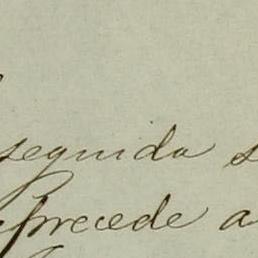 seguida s
precede a